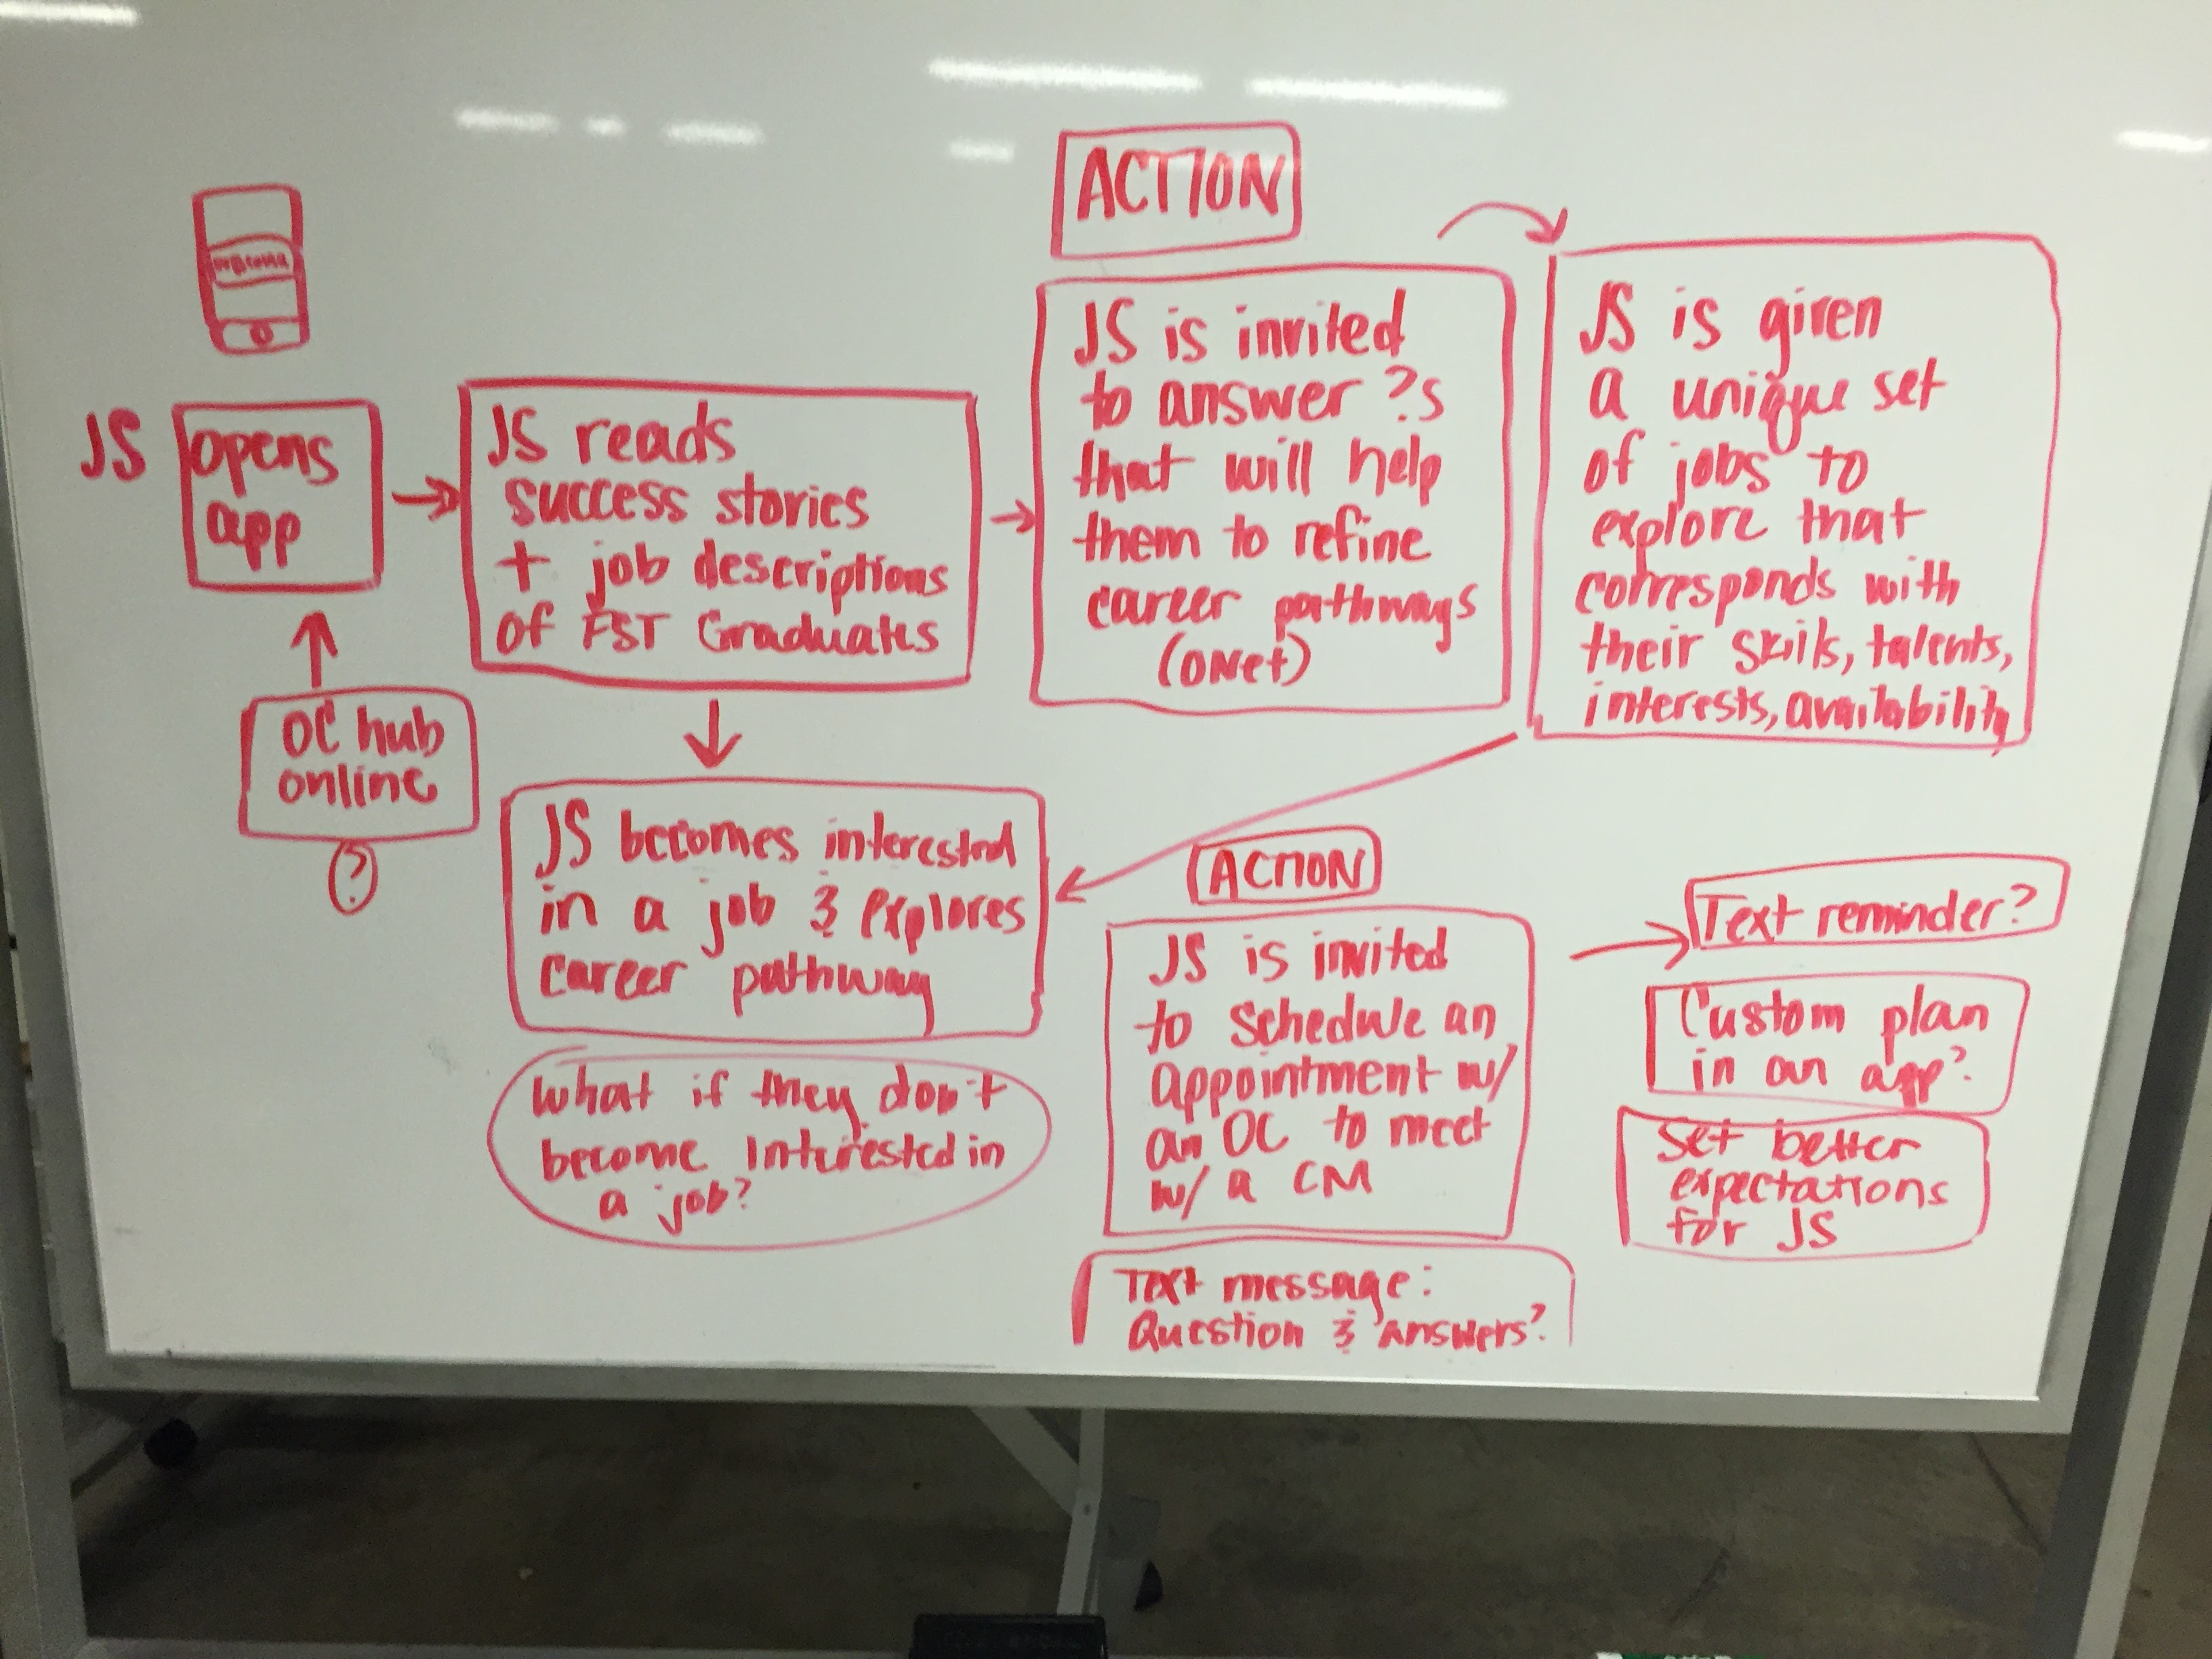 ACTION
JS
opens
app
OC hub
online
?
JS reads
success stories
+ job descriptions
of FST Graduates
JS is invited
to answer ?s
that will help
them to refine
career pathways
(ONet)
JS is given
a unique set
of jobs to
explore that
corresponds with
their skills, talents,
interests, availability
JS becomes interested
in a job & explores
career pathway
What if they don't
become interested in
a job?
ACTION
JS is invited
to schedule an
appointment w/
an OC to meet
w/ a CM
Text message:
Question & answers?
Text reminder?
Custom plan
in an app?
Set better
expectations
for JS